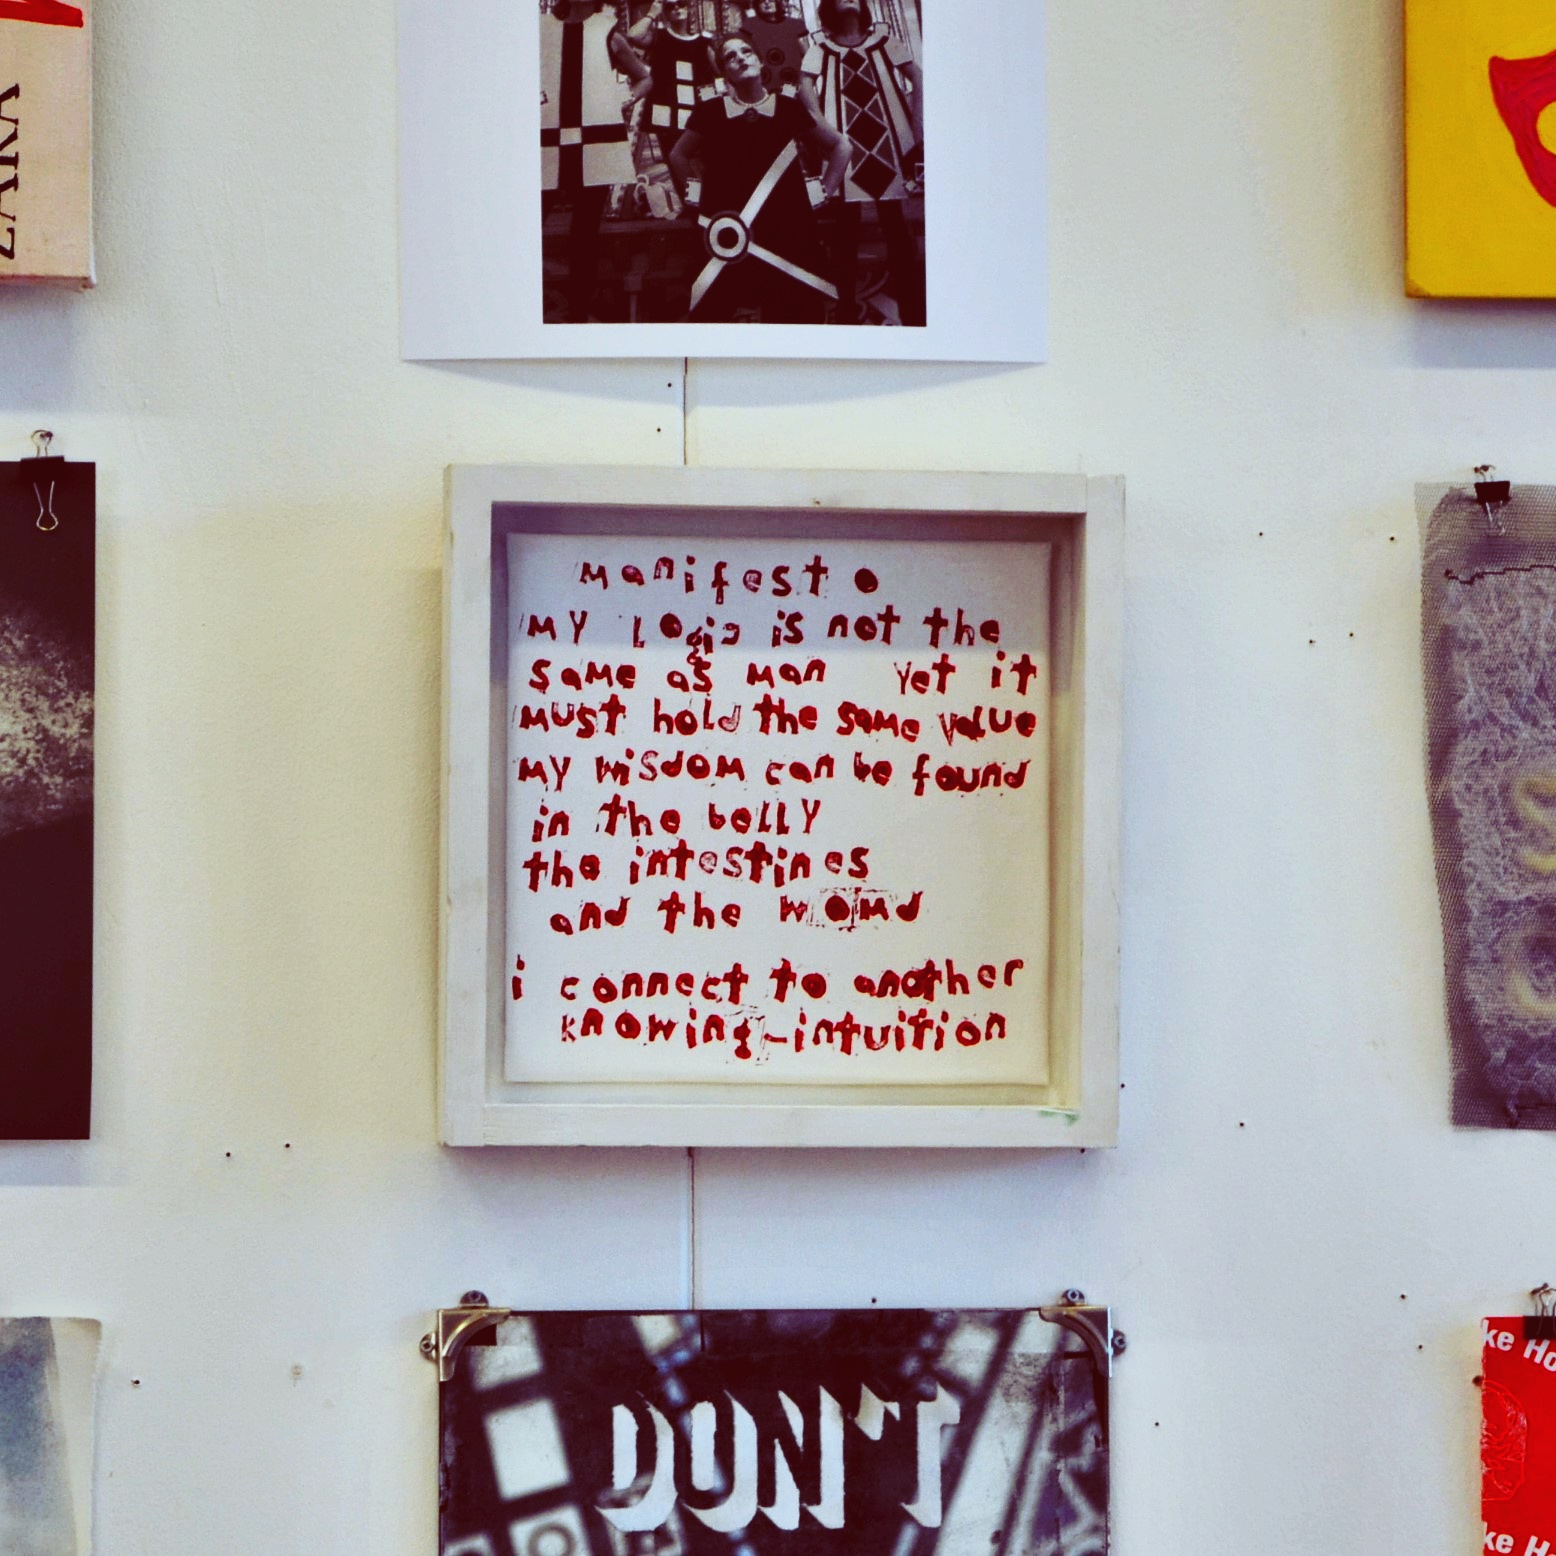 ZARA
manifesto
MY Logic is not the
same as man yet it
must hold the same value
my wisdom can be found
in the belly
the intestines
and the womd
i connect to another
knowing-intuition
DON'T
ke Ho
ke H